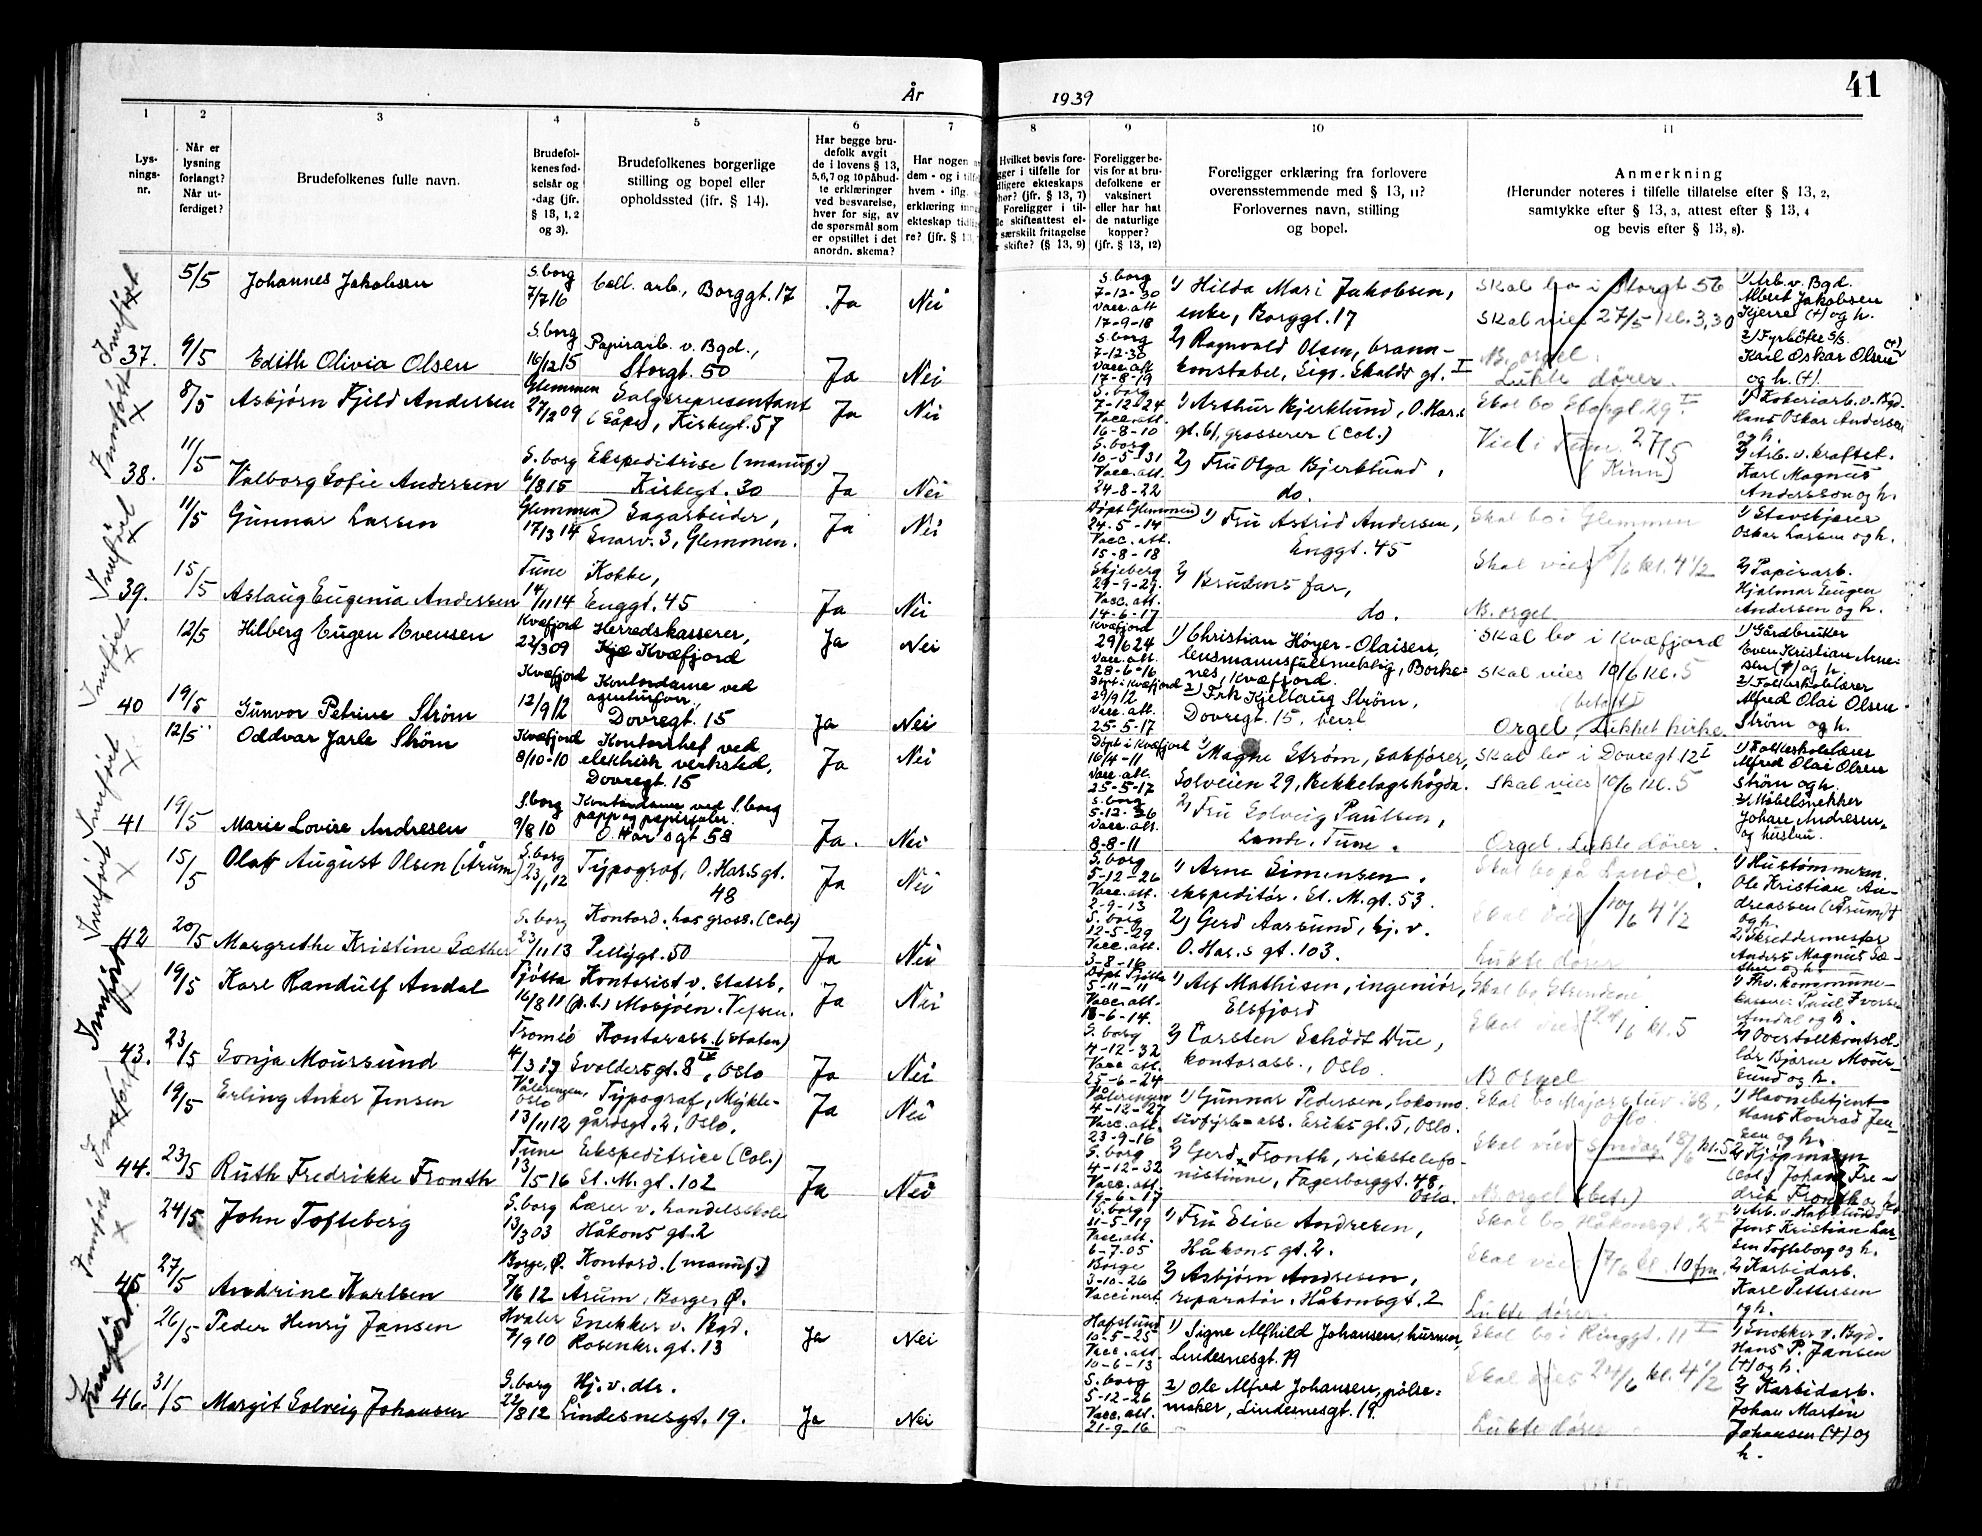 År 1939
41
1 2 3 4 5 6 7 8 9 10 11
Lys-
nings-
nr.
Når er
lysning
forlangt?
Når ut-
ferdiget?
Brudefolkenes fulle navn.
Brudefol-
kenes fød-
selsår og
-dag (jfr.
§ 13, 1, 2
og 3).
Brudefolkenes borgerlige
stilling og bopel eller
opholdssted (ifr. § 14).
Har begge bru-
defolk avgit
de i lovens § 13,
5, 6, 7 og 10 påbud-
te erklæringer
ved besvarelse,
hver for sig, av
de spørsmål som
er opstillet i det
anordn. skema?
Har nogen a
dem - og i tilf
hvem - iflg.
erklæring inng
ekteskap tidlig
re? (jfr. § 13,
Hvilket bevis fore-
gger i tilfelle for
dligere ekteskaps
hør? (jfr. § 13, 7)
Foreligger i til-
le skifteattest el-
særskilt fritagelse
skifte? (§ 13, 9)
Foreligger be-
vis for at bru-
defolkene er
vaksinert
eller har hat
de naturlige
kopper?
(jfr. § 13, 12)
Foreligger erklæring fra forlovere
overensstemmende med § 13, 11?
Forlovernes navn, stilling
og bopel.
Anmerkning
(Herunder noteres i tilfelle tillatelse efter § 13, 2,
samtykke efter § 13, 3, attest efter § 13, 4
og bevis efter § 13, 8).
Innført
5/5 Johannes Jakobsen
S.borg
7/7 16
Cell. arb., Borggt. 17
Ja Nei
S. borg
7-12-30
Vacc. att.
17-9-18
1) Hilda Mari Jakobsen,
enke, Borggt. 17
Skal bo i Storgt 56
Skal vies 27/5 kl. 3,30
1) Arb. v. Bgd.
Albert Jakobsen
Kjerre (+) og h.
37. 9/5 Edith Olivia Olsen
S. borg
16/12 15
Papirarb. v. Bgd.,
Storgt. 50
Ja Nei
S. borg
7-12-30
Vacc. att.
17-8-19
2) Ragnvald Olsen, brann-
konstabel, Sigv. Skalds gt. I
N. orgel.
Lukte dører.
2) Fyrbøter S/S.
Karl Oskar Olsen (+)
og h. (+).
Innført X
8/5 Asbjørn Kjeld Andersen
Glemmen
27/2 09
Salgsrepresentant
(Såpe), Kirkegt. 57
Ja Nei
S. borg
7-12-24
Vacc. att.
16-8-10
1) Arthur Bjerklund, O. Hars
gt. 61, grosserer (Col.)
Skal bo Storgt. 29 II
Viel i Tune 27/5
(Kinn)
1) Kokeriarb. v. Bgd.
Hans Oskar Andersen
og h.
38. 11/5 Valborg Sofie Andersen
S. borg
6/8 15
Ekspeditrise (manuf.)
Kirkegt. 30
Ja Nei
S. borg
10-5-31
Vacc. att.
24-8-22
2) Fru Olga Bjerklund,
do.
2) Arb. v. kraftst.
Karl Magnus
Andersson og h.
Innført X
11/5 Gunnar Larsen
Glemmen
17/3 14
Sagarbeider,
Snarv. 3, Glemmen.
Ja Nei
Døpt Glemmen
24-5-14
Vacc. att.
15-8-18
1) Fru Astrid Andersen,
Enggt. 45
Skal bo i Glemmen
Skal vies /6 kl. 4 1/2
1) Støvkjører
Oskar Larsen og h.
39. 15/5 Aslaug Eugenia Andersen
Tune
14/11 14
Kokke,
Enggt. 45
Ja Nei
Skjeberg
29-9-29
Vacc. att.
14-6-17
2) Brudens far,
do.
N. orgel
2) Papirarb.
Hjalmar Eugen
Andersen og h.
Innført X
12/5 Hilberg Eugen Evensen
Kvæfjord
22/3 09
Herredskasserer,
Kvæfjord
Ja Nei
Kvæfjord
29/6 24
Vacc. att.
28-6-16
1) Christian Høyer-Olaisen,
lensmannsfullmektig, Borke-
nes, Kvæfjord.
Skal bo i Kvæfjord
Skal vies 10/6 kl. 5
1) Gårdbruker
Even Kristian Arne-
sen (+) og h.
40 19/5 Gunvor Petrine Strøm
Kvæfjord
12/9 12
Kontordame ved
agenturforr.
Dovregt. 15
Ja Nei
Døpt i Kvæfjord
29/9 12
Vacc. att.
25-5-17
2) Frk Kjellaug Strøm,
Dovregt. 15, her.
(betalt)
Orgel Lukket kirke.
2) Folkeskolelærer
Alfred Olai Olsen
Strøm og h.
Innført X
12/5 Oddvar Jarle Strøm
Kvæfjord
8/10-10
Kontorchef ved
elektrisk verksted,
Dovregt. 15
Ja Nei
Døpt i Kvæfjord
16/4-11
Vacc. att.
25-5-17
1) Magne Strøm, sakfører,
Solveien 29, Bekkelagshøgda.
Skal bo i Dovregt 12 I
Skal vies 10/6 kl. 5
1) Folkeskolelærer
Alfred Olai Olsen
Strøm og h.
41 19/5 Marie Lovise Andresen
S.borg
9/8 10
Kontordame ved S.borg
papp og papirsaler.
O. Har sgt 58
Ja. Nei
S. borg
5-12-26
Vacc. att.
8-8-11
2) Fru Solveig Paulsen,
Lande, Tune.
Orgel. Lukte dører.
2) Møbelsnekker
Johan Andresen
og hustru.
Innført X
15/5 Olaf August Olsen (Årum)
S. borg
23/1 12
Typograf, O. Har.s gt.
48
Ja Nei
S. borg
5-12-26
Vacc. att.
2-9-13
1) Arne Simensen,
ekspeditør. St. M. gt. 53.
Skal bo på Lande.
Skal vies 10/6 4 1/2
1) Hustømmerm.
Ole Kristian An-
dreassen (Årum) +
og h.
42 20/5 Margrethe Kristine Sæther
S. borg
23/11 13
Kontord. hos gross. (Col.)
Pellygt. 50
Ja Nei
S. borg
12-5-29
Vacc. att.
3-8-16
2) Gerd Aarsund, hj. v.
O. Har.s gt. 103.
Lukte dører
2) Skreddermester
Anders Magnus Sæ-
ther og h.
Innført
19/5 Karl Randulf Andal
Tjøtta
16/8 11
Kontorist v. Statsb,
(p.t.) Mosjøen. Vefsen.
Ja Nei
Døpt Tjøtta
5-11-11
Vacc. att.
8-6-14.
1) Alf Mathisen, ingeniør,
Elsfjord
Skal bo Strindene
Skal vies 24/6 kl. 5
1) Fhv. kommune-
kasserer Paul Iversen
Andal og h.
43. 23/5 Sonja Moursund
Tromsö
4/3 17
Kontorass. (Staten)
Svoldersgt. 8 IV, Oslo
Ja Nei
S. borg
4-12-32
Vacc. att.
25-6-24
2) Carsten Schödt Due,
kontorass., Oslo.
N. Orgel
2) Overtollkontrol-
lør Bjarne Mour-
sund og h.
Innført
19/5 Erling Anker Jensen
Vålerengen,
Oslo
13/11 12
Typograf, Mykle-
gårdsgt. 2, Oslo.
Ja Nei
Vålerengen
4-12-27
Vacc. att.
23-9-16
1) Gunnar Pedersen, lokomo
tivfyrb-ass. Eriks gt. 5, Oslo.
Skal bo Majorstuv. 38,
Oslo.
Skal vies søndag 18/6 kl. 5
1) Havnebetjent
Hans Konrad Jen-
sen og h.
44. 23/5 Ruth Fredrikke Fronth
Tune
13/5 16
Ekspeditrice (Col.)
St. M. gt. 102
Ja Nei
S. borg
4-12-32
Vacc. att.
19-6-17
2) Gerd Fronth, rikstelefo-
nistinne, Fagerborggt. 48,
Oslo.
N. orgel (bet.)
2) Kjøpmann
(Col.) Johan Fre-
drik Fronth og h
Innført X
24/5 John Tofteberg
S. borg
13/3 03
Lærer v. handelsskole
Håkons gt. 2
S. borg
11-5-19
Vacc. att.
6-7-05
1) Fru Elise Andresen,
Håkons gt. 2.
Skal bo Håkonsgt. 2 I
Skal vies 7/6 kl. 10 fm.
1) Arb. v. Hafslund
Jens Kristian Lar
sen Tofteberg og h.
45 27/5 Andrine Karlsen
Borge, Ø.
7/6 12
Kontord. (manuf.)
Årum, Borge, Ø.
Borge
3-10-26
Vaccinert
2) Asbjørn Andresen,
reparatør. Håkonsgt. 2
Lukte dører.
2) Karbidarb.
Karl Pettersen
og h.
Innført
26/5 Peder Henry Jansen
Hvaler
7/9 10
Snekker v. Bgd.
Rosenkr. gt. 13
Ja Nei
Hafslund
10-5-25
Vacc. att.
10-6-13
1) Signe Alfhild Johansen, husmor,
Lindesnesgt. 19
Skal bo i Ringgt. 11 II
Skal vies 24/6 kl. 4 1/2
1) Snekker v. Bgd.
Hans P. Jansen
(+) og h.
46. 31/5 Margit Solveig Johansen
S. borg
22/8 12
Hj. v. dtr.
Lindesnesgt. 19.
Ja Nei
S. borg
5-12-26
Vacc. att.
21-9-16
2) Ole Alfred Johansen, pølse-
maker, Lindesnesgt. 19.
Lukte dører
2) Karbidarb.
Johan Martin
Johansen (+) og
h.